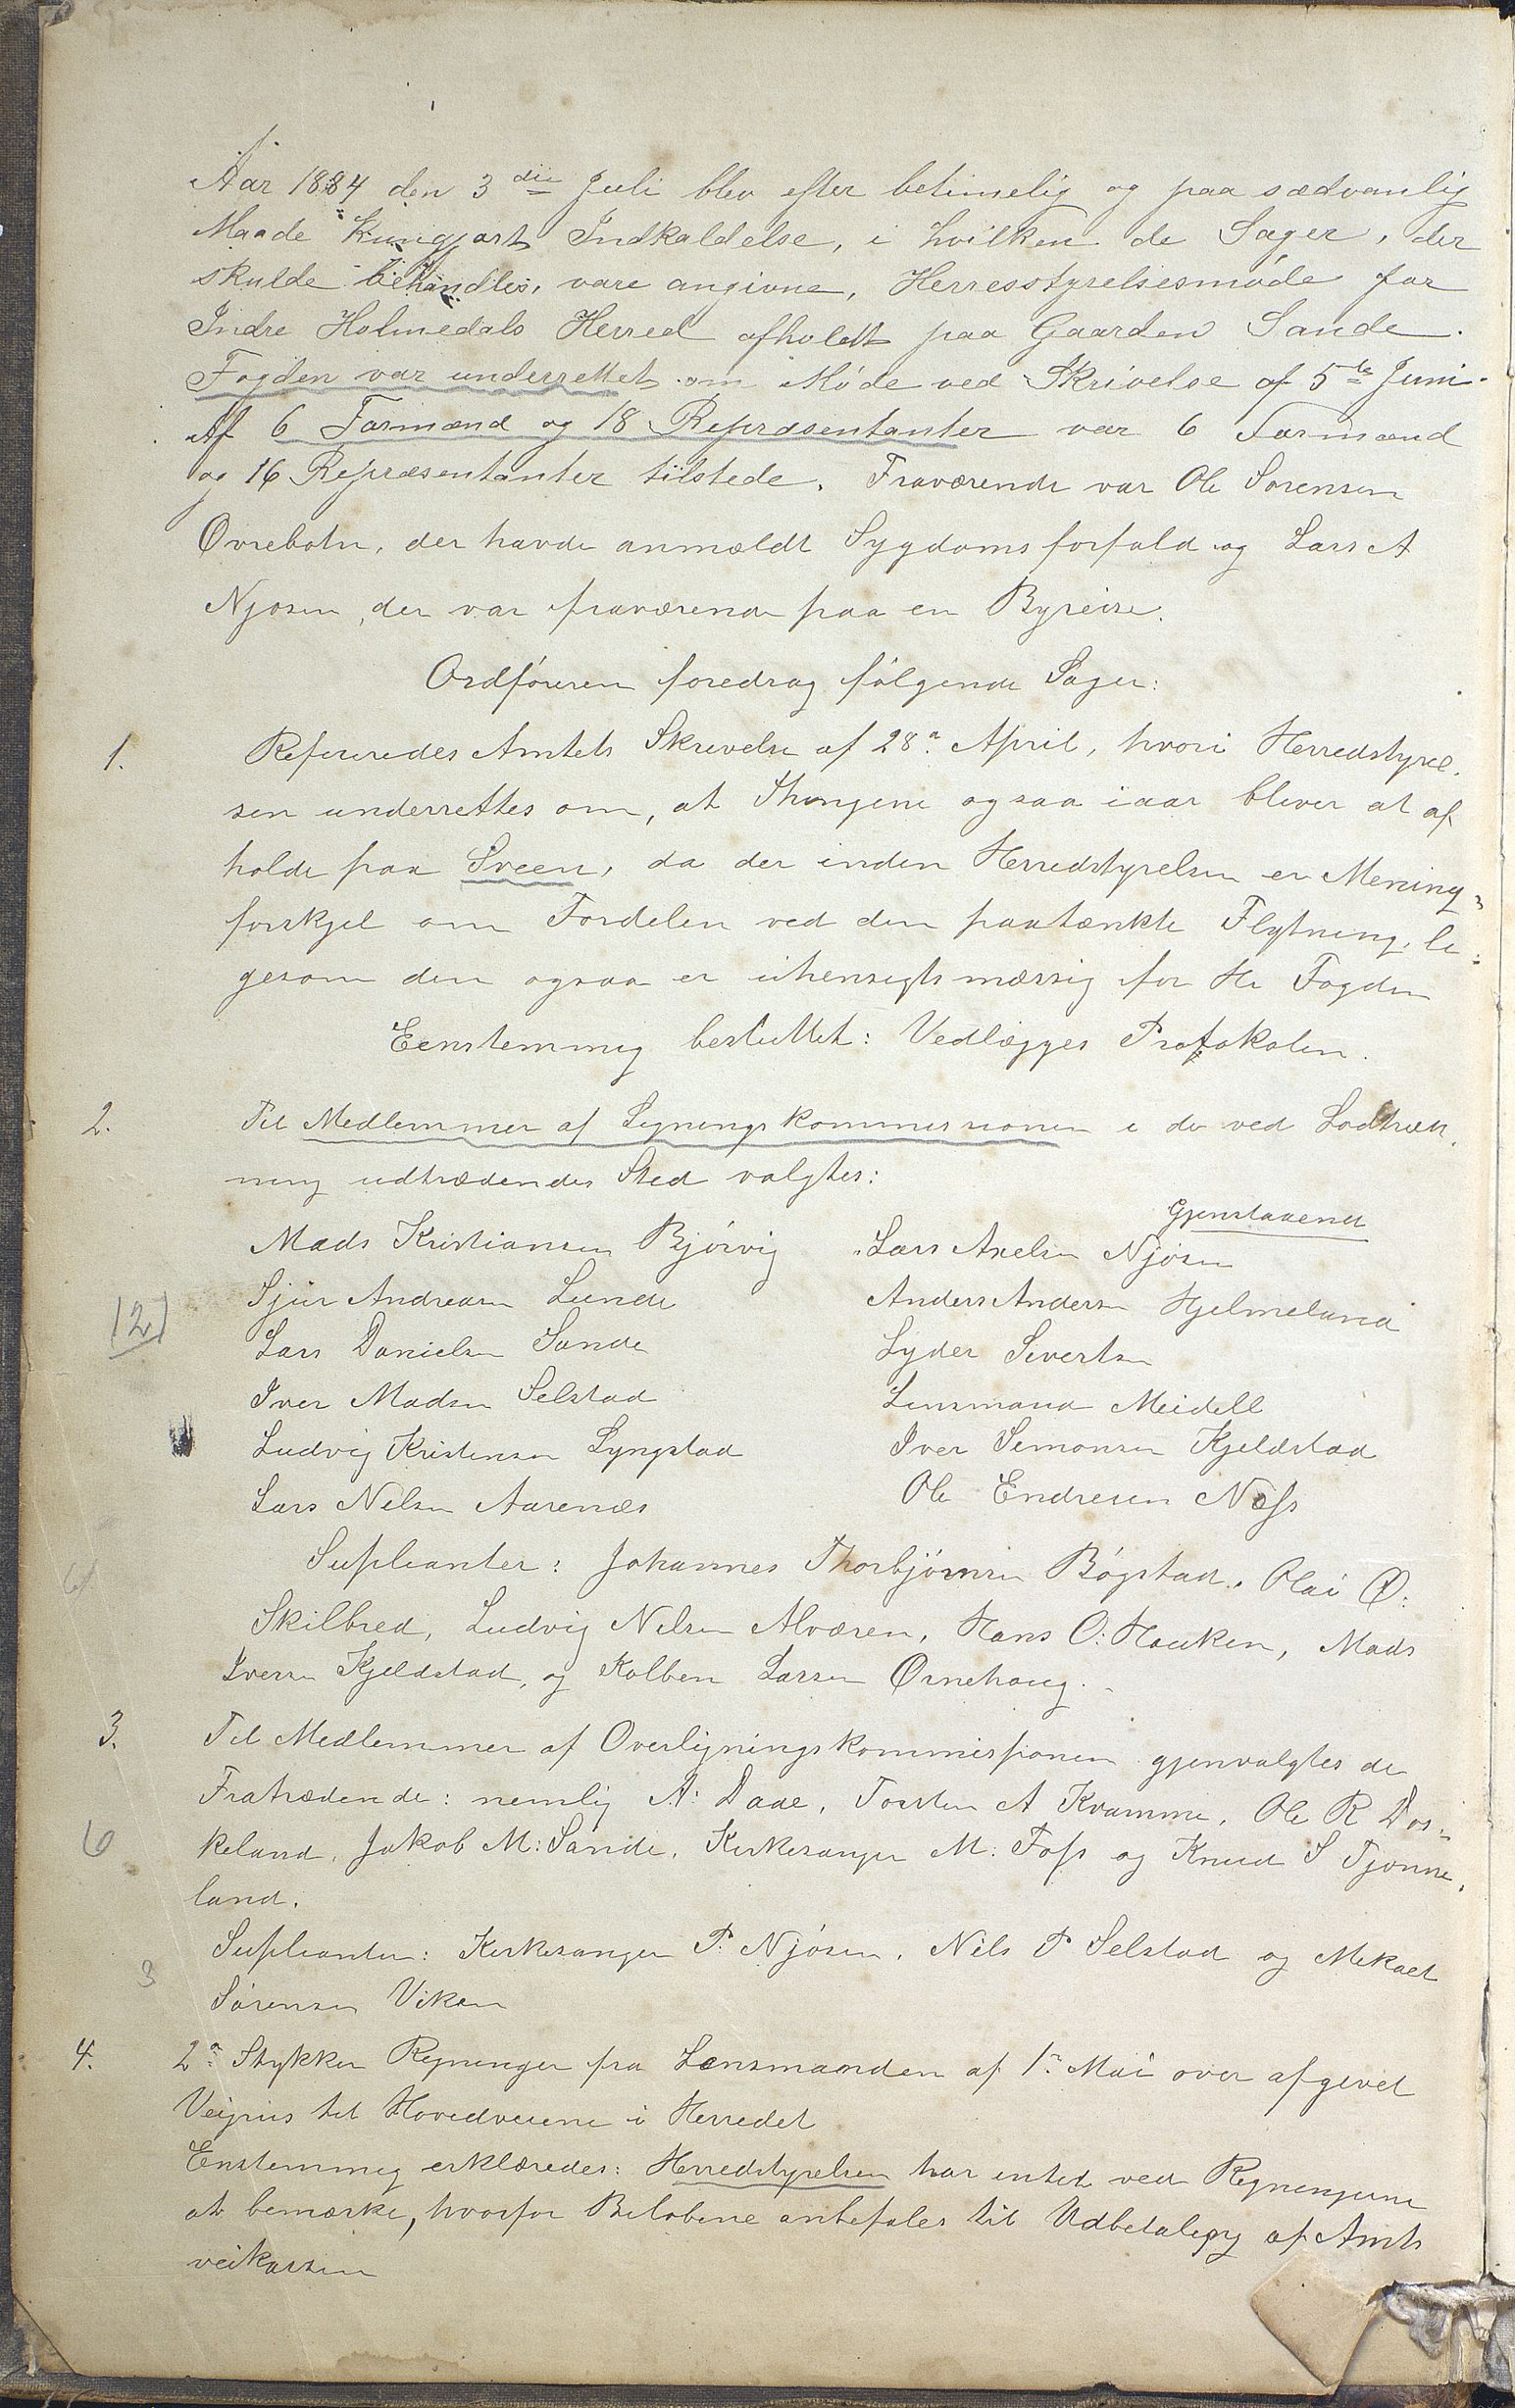 Aar 1884 den 3die Juli blev efter betimelig og paa sædvanlig
Maade kungjort Indkaldelse, i hvilken de Sager, der
skulde behandles, vare angivne, Herresstyrelsesmøde for
Indre Holmedals Herred afholdt paa Gaarden Sande.
Fogden var underrettet om Møde ved Skrivelse af 5te Juni.
Af 6 Formænd og 18 Repræsentanter var 6 Formænd
og 16 Repræsentanter tilstede. Fraværende var Ole Sørensen
Øvrebotn, der havde anmældt Sygdomsforfald og Lars A
Njøsen, der var fraværende paa en Byreise.
Ordføreren foredrag følgende Sager:
1. Refereredes Amtets Skrivelse af 28de April, hvori Herredstyrel-
sen underrettes om, at Thingene ogsaa iaar bliver at af
holde paa Sveen, da der inden Herredstyrelsen er Menings
forskjel om Fordelen ved den paatænkte Flytning, li-
gesom den ogsaa er uhensigtsmæssig for Hr Fogden
Eenstemmig besluttet: Vedlægges Protokolen.
2. Til Medlemmer af Ligningskommissionen i de ved Lodtræk-
ning udtrædendes Sted valgtes:
Gjenstaaende
Mads Kristiansen Bjørvig Lars Axelsen Njøsen
Sjur Andreasen Lunde Anders Andersen Hjelmeland
12
Lars Danielsen Sande Lyder Sivertsen
Iver Madsen Selstad Lensmand Meidell
Ludvig Kristensen Lyngstad Iver Simonsen Kjeldstad
Lars Nilsen Aarenæs Ole Endresen Næss
6
Suplianter: Johannes Thorbjørnsen Bøgstad, Olai O:
Skilbred, Ludvig Nilsen Alværen, Hans O: Hauken, Mads
Iversen Kjeldstad, og Kolben Larsen Ørnehaug.
3. Til Medlemmer af Overligningskommissionen gjenvalgtes de
Fratrædende: nemlig A: Daae, Torsten A Kvamme, Ole R Dos-
6
keland, Jakob M: Sande, Kirkesanger M: Foss og Knud S Tjønne-
land.
Suplianter: Kirkesanger P: Njøsen, Nils P Selstad og Mikael
3
Sørensen Viken
4. 2de Stykker Regninger fra Lensmanden af 1ste Mai over afgivet
Veigrus til Hovedveiene i Herredet
Enstemmig erklæredes: Herredstyrelsen har intet ved Regningerne
at bemærke, hvorfor Beløbene anbefales til Udbetaling af Amts
veikassen